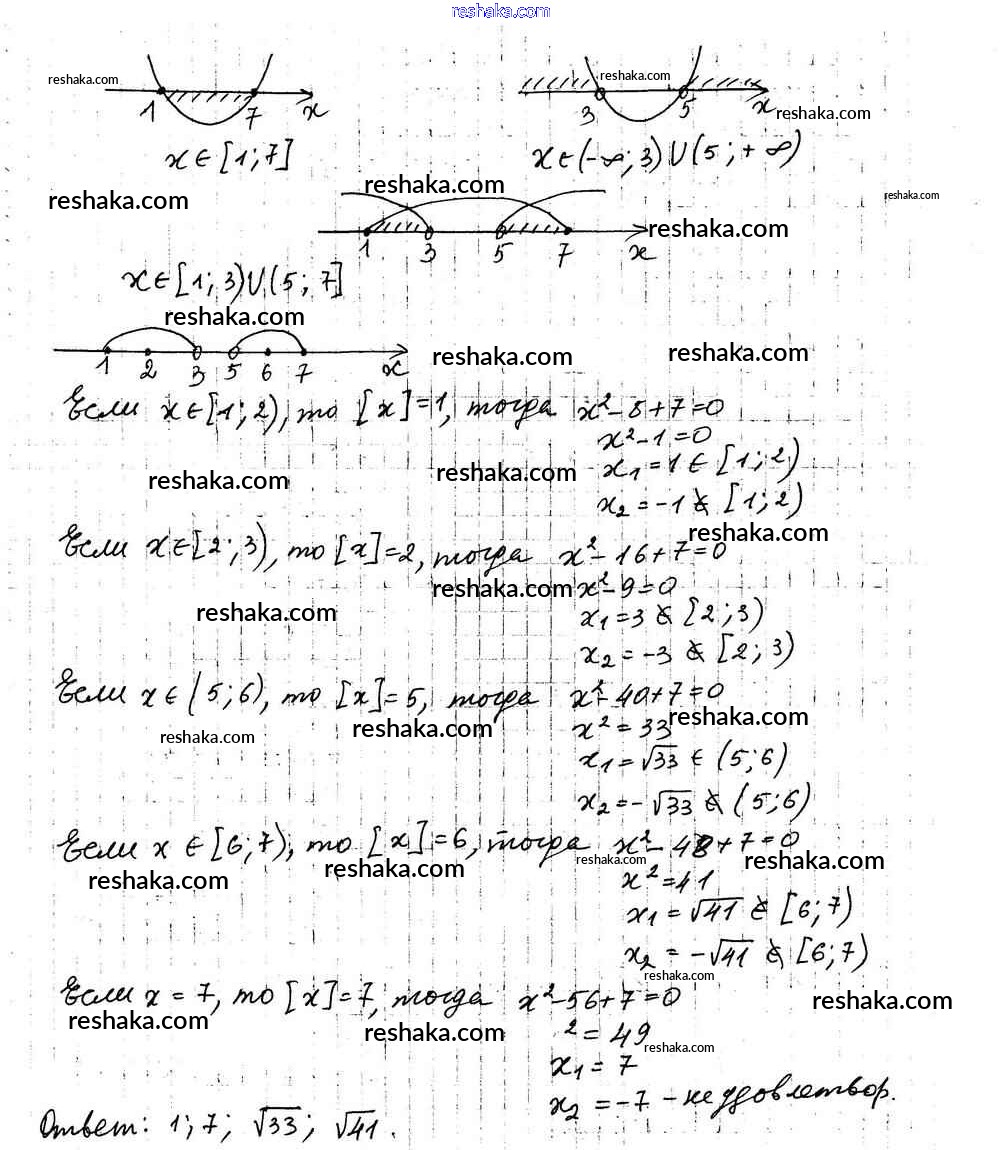 reshaka.com
reshaka.com
reshaka.com
1 7 x
3 5 x
reshaka.com
x ∈ [1; 7]
x ∈ (-∞; 3) ∪ (5; +∞)
reshaka.com
reshaka.com
reshaka.com
reshaka.com
1 3 5 7 x
x ∈ [1; 3) ∪ (5; 7]
reshaka.com
reshaka.com
reshaka.com
1 2 3 5 6 7 x
Если x ∈ [1; 2), то [x] = 1, тогда x² - 8 + 7 = 0
x² - 1 = 0
x₁ = 1 ∈ [1; 2)
reshaka.com
reshaka.com
x₂ = -1 ∉ [1; 2)
reshaka.com
Если x ∈ [2; 3), то [x] = 2, тогда x² - 16 + 7 = 0
reshaka.com
x² - 9 = 0
reshaka.com
x₁ = 3 ∉ [2; 3)
x₂ = -3 ∉ [2; 3)
Если x ∈ (5; 6), то [x] = 5, тогда x² - 40 + 7 = 0
reshaka.com
reshaka.com
reshaka.com
x² = 33
x₁ = √33 ∈ (5; 6)
x₂ = -√33 ∉ (5; 6)
Если x ∈ [6; 7), то [x] = 6, тогда x² - 48 + 7 = 0
reshaka.com
reshaka.com
reshaka.com
reshaka.com
x² = 41
x₁ = √41 ∈ [6; 7)
x₂ = -√41 ∉ [6; 7)
reshaka.com
Если x = 7, то [x] = 7, тогда x² - 56 + 7 = 0
reshaka.com
reshaka.com
reshaka.com
² = 49
reshaka.com
x₁ = 7
x₂ = -7 - не удовлетвор.
Ответ: 1; 7; √33; √41.